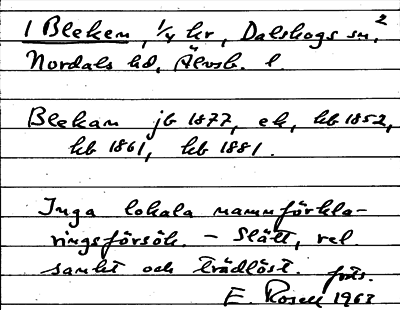 1 Bleken, 1/4 hr, Dalskogs sn, 2
Nordals hd, Älvsb. l.
Blekan jb 1877, ek, hb 1852,
hb 1861, hb 1881.
Inga lokala namnförkla-
ringsförsök. - Slätt, rel.
sankt och trädlöst. forts.
E. Rosell 1963